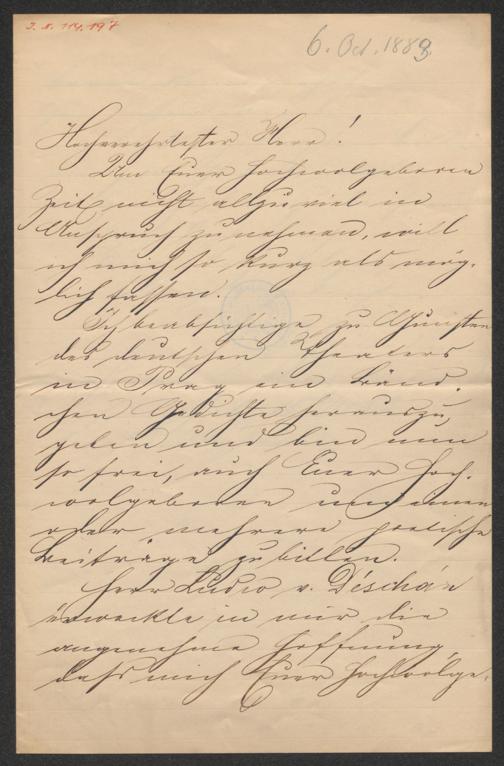 I. N. 114.197
6. Oct. 1888
Hochverehrtester Herr!
Um Euer Hochwolgeboren
Zeit nicht allzu viel in
Anspruch zu nehmen, will
ich mich so kurz als mög-
lich fassen.
Ich beabsichtige zu Gunsten
des deutschen Theaters
in Prag ein Bänd-
chen Gedichte herauszu-
geben und bin nun
so frei, auch Euer Hoch-
wolgeboren um einen
oder mehrere poetische
Beiträge zu bitten.
Herr Ludw v. Déschán
erweckte in mir die
angenehme Hoffnung,
dass mich Euer Hochwolge-